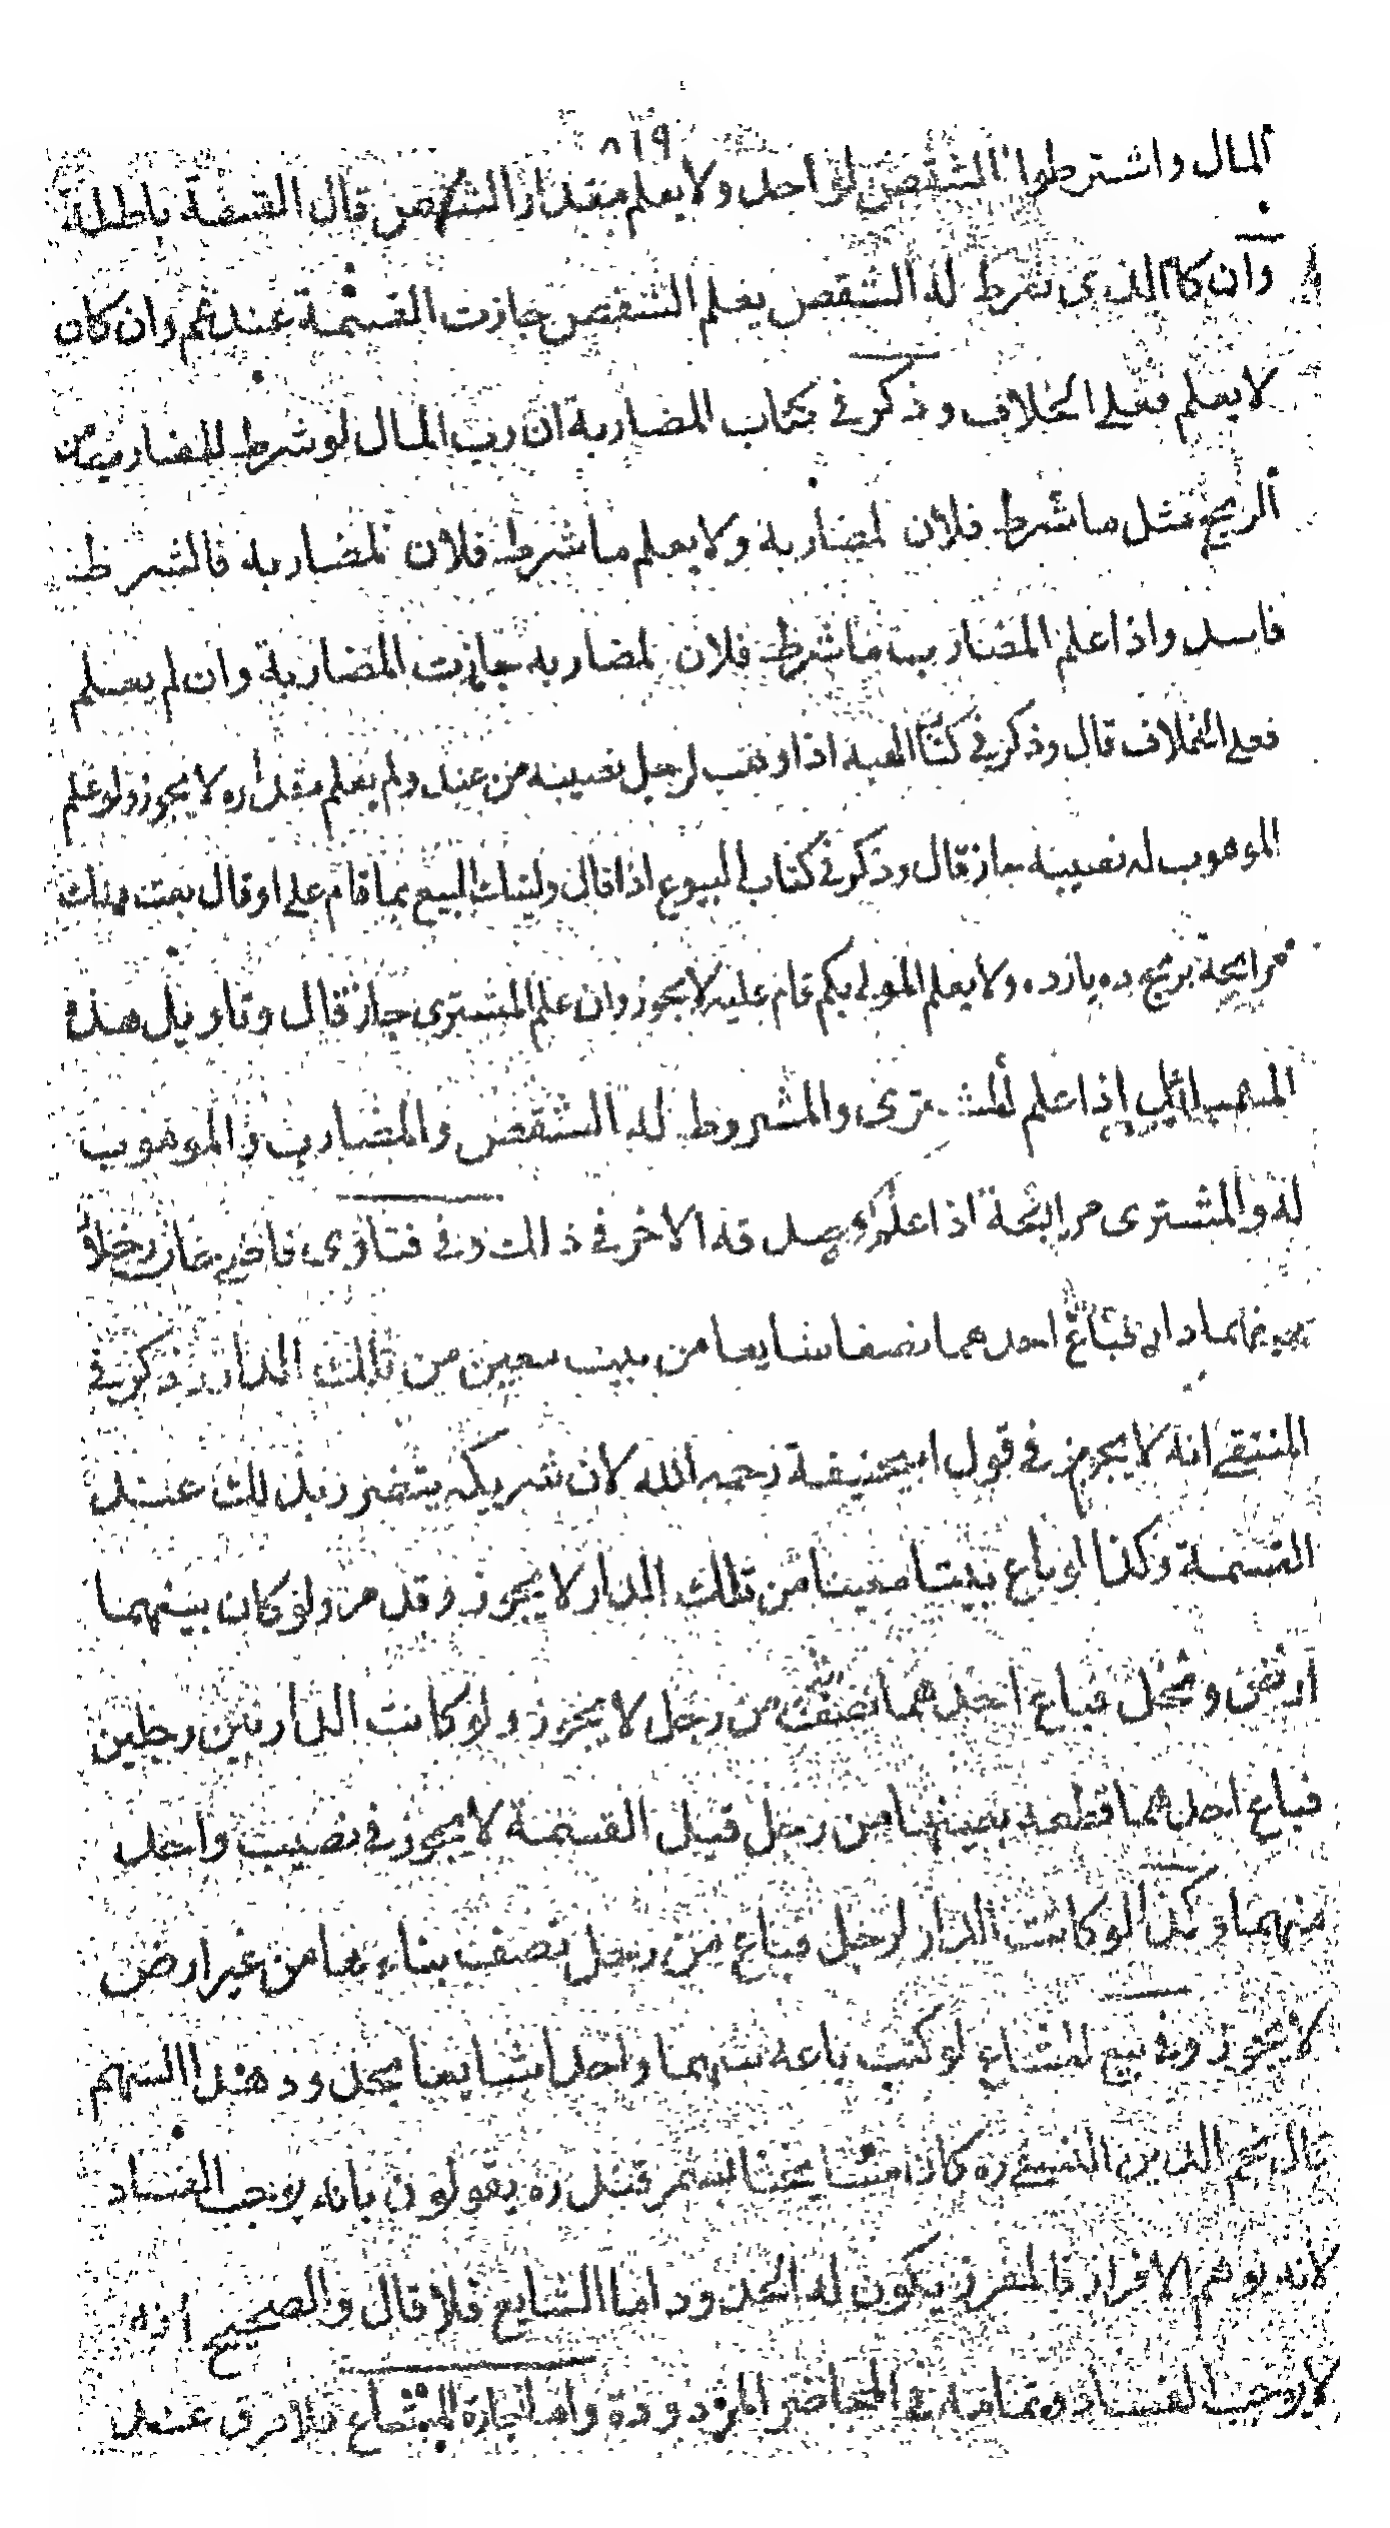 ٨١٩
المال واشترطوا الشقص لواحد ولا يعلم مقدار الشقص قال القسمة باطلة
وان كان الذى شرط له الشقص يعلم الشقص جازت القسمة عندهم وان كان
لا يعلم فعلى الخلاف وذكر فى كتاب المضاربة ان رب المال لو شرط للمضارب من
الربح مثل ما شرط فلان لمضاربه ولا يعلم ما شرط فلان لمضاربه فالشرط
فاسد واذا علم المضارب ما شرط فلان لمضاربه جازت المضاربة وان لم يعلم
فعلى الخلاف قال وذكر فى كتاب الهبة اذا وهب لرجل نصيبه من عبد ولم يعلم مقداره لا يجوز ولو علم
الموهوب له نصيبه جاز قال وذكر فى كتاب البيوع اذا قال وليتك البيع بما قام على او قال بعت منك
مرابحة بربح ده يازده ولا يعلم المولى بكم قام عليه لا يجوز وان علم المشترى جاز قال وتاويل هذه
المسائل اذا علم المشترى والمشروط له الشقص والمضارب والموهوب
له والمشترى مرابحة اذا علم وصدقه الاخر فى ذلك وفى فتاوى قاضى خان رجلان
بينهما دار فباع احدهما نصفا شايعا من بيت معين من تلك الدار ذكر فى
المنتقى انه لا يجوز فى قول ابيحنيفة رحمه الله لان شريكه يتضرر بذلك عند
القسمة وكذا لو باع بيتا معينا من تلك الدار لا يجوز وقد مر ولو كان بينهما
ارض ونخل فباع احدهما نصفه من رجل لا يجوز ولو كانت الدار بين رجلين
فباع احدهما قطعة بعينها من رجل قبل القسمة لا يجوز فى نصيب واحد
منهما وكذا لو كانت الدار لرجل فباع من رجل نصف بناءها من غير ارض
لا يجوز وفى بيع المشاع لو كتب باعه سهما واحدا شايعا بحدود هذا السهم
قال نجم الدين النسفى ره كان مشايخنا بسمرقند ره يقولون بانه يوجب الفساد
لانه يوهم الافراز فالمفرز يكون له الحدود اما الشايع فلا قال والصحيح انه
لا يوجب الفساد وتمامه فى المحاضر المردودة واما اجارة المشاع فلا فرق عند